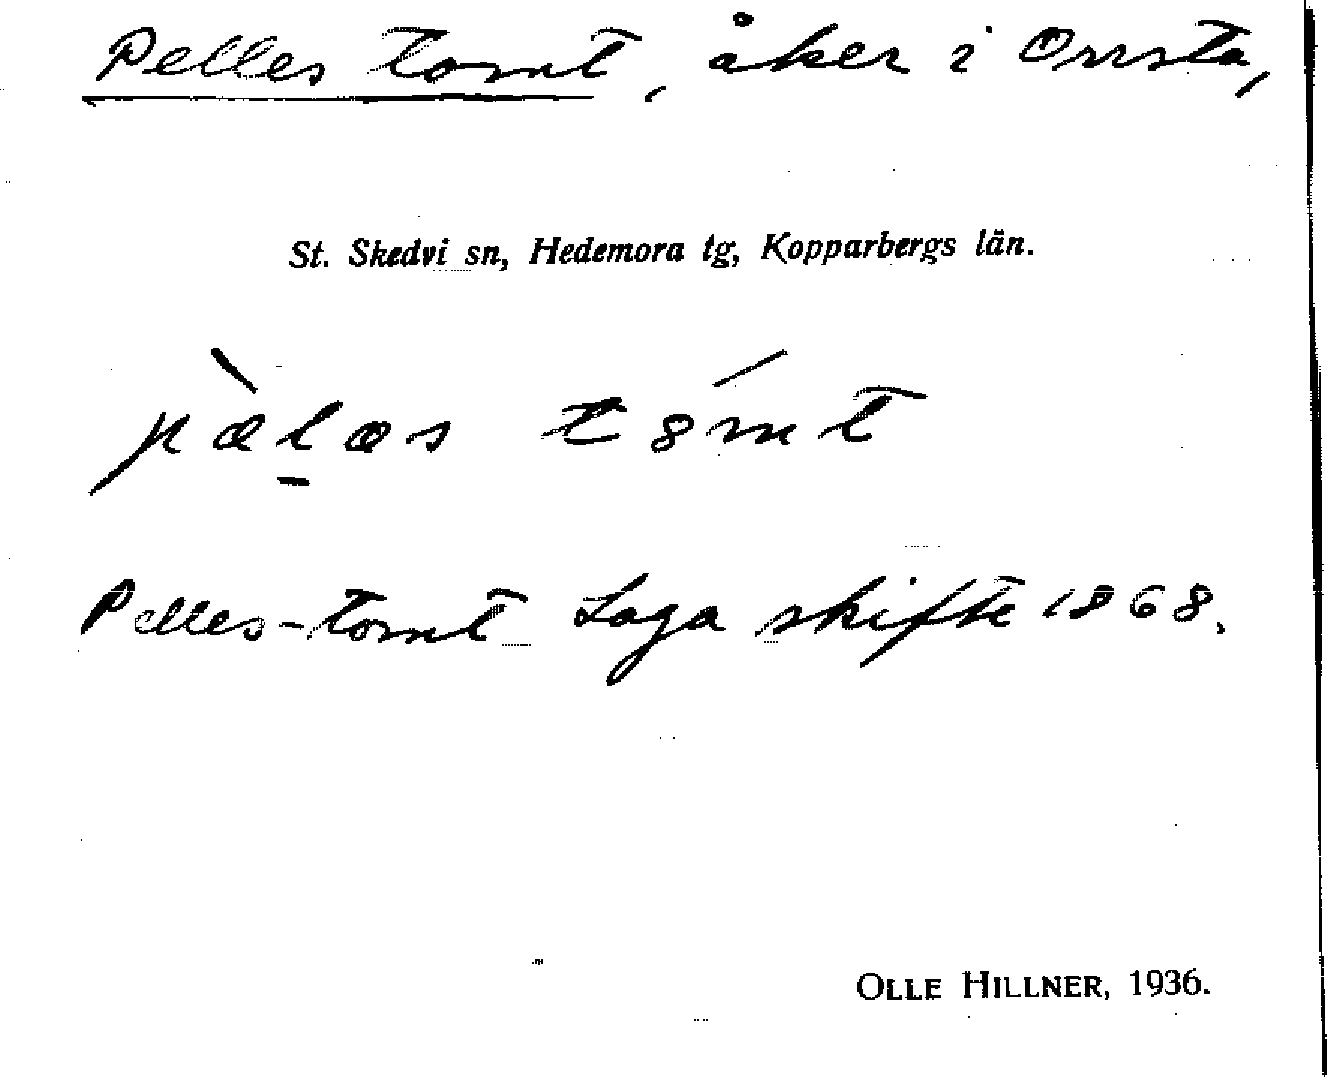 Pelles tomt, åker i Orrsta,
St. Skedvi sn, Hedemora tg, Kopparbergs län.
Pelles-tomt Laga skifte 1868.
OLLE HILLNER, 1936.